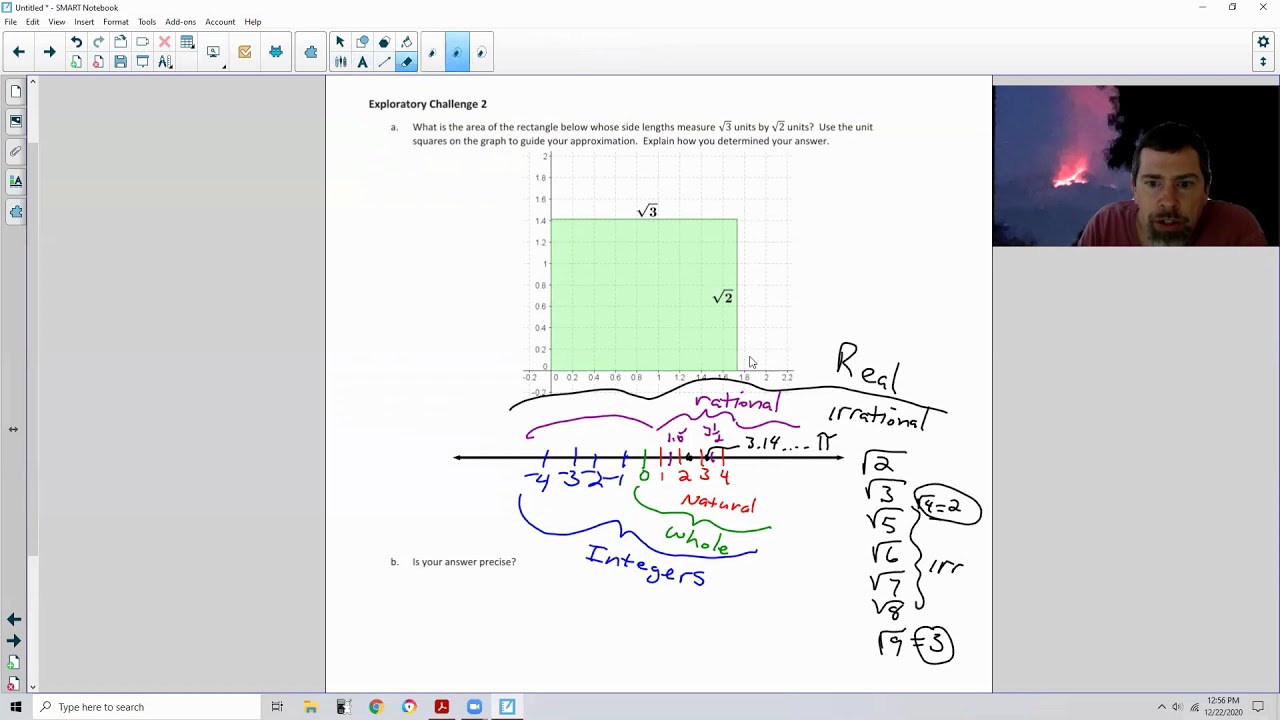 Untitled * - SMART Notebook
File Edit View Insert Format Tools Add-ons Account Help
Exploratory Challenge 2
a. What is the area of the rectangle below whose side lengths measure √3 units by √2 units? Use the unit
squares on the graph to guide your approximation. Explain how you determined your answer.
2
1.8
1.6
√3
1.4
1.2
1
0.8
√2
0.6
0.4
0.2
0
-0.2 0 0.2 0.4 0.6 0.8 1 1.2 1.4 1.6 1.8 2 2.2
-0.2
Real
rational
irrational
1.5 3 1/2
3.14.... π
-4 -3 -2 -1 0 1 2 3 4
Natural
whole
Integers
√2
√3
√4=2
√5
√6
irr
√7
√8
√9=3
b. Is your answer precise?
Type here to search
12:56 PM
12/22/2020